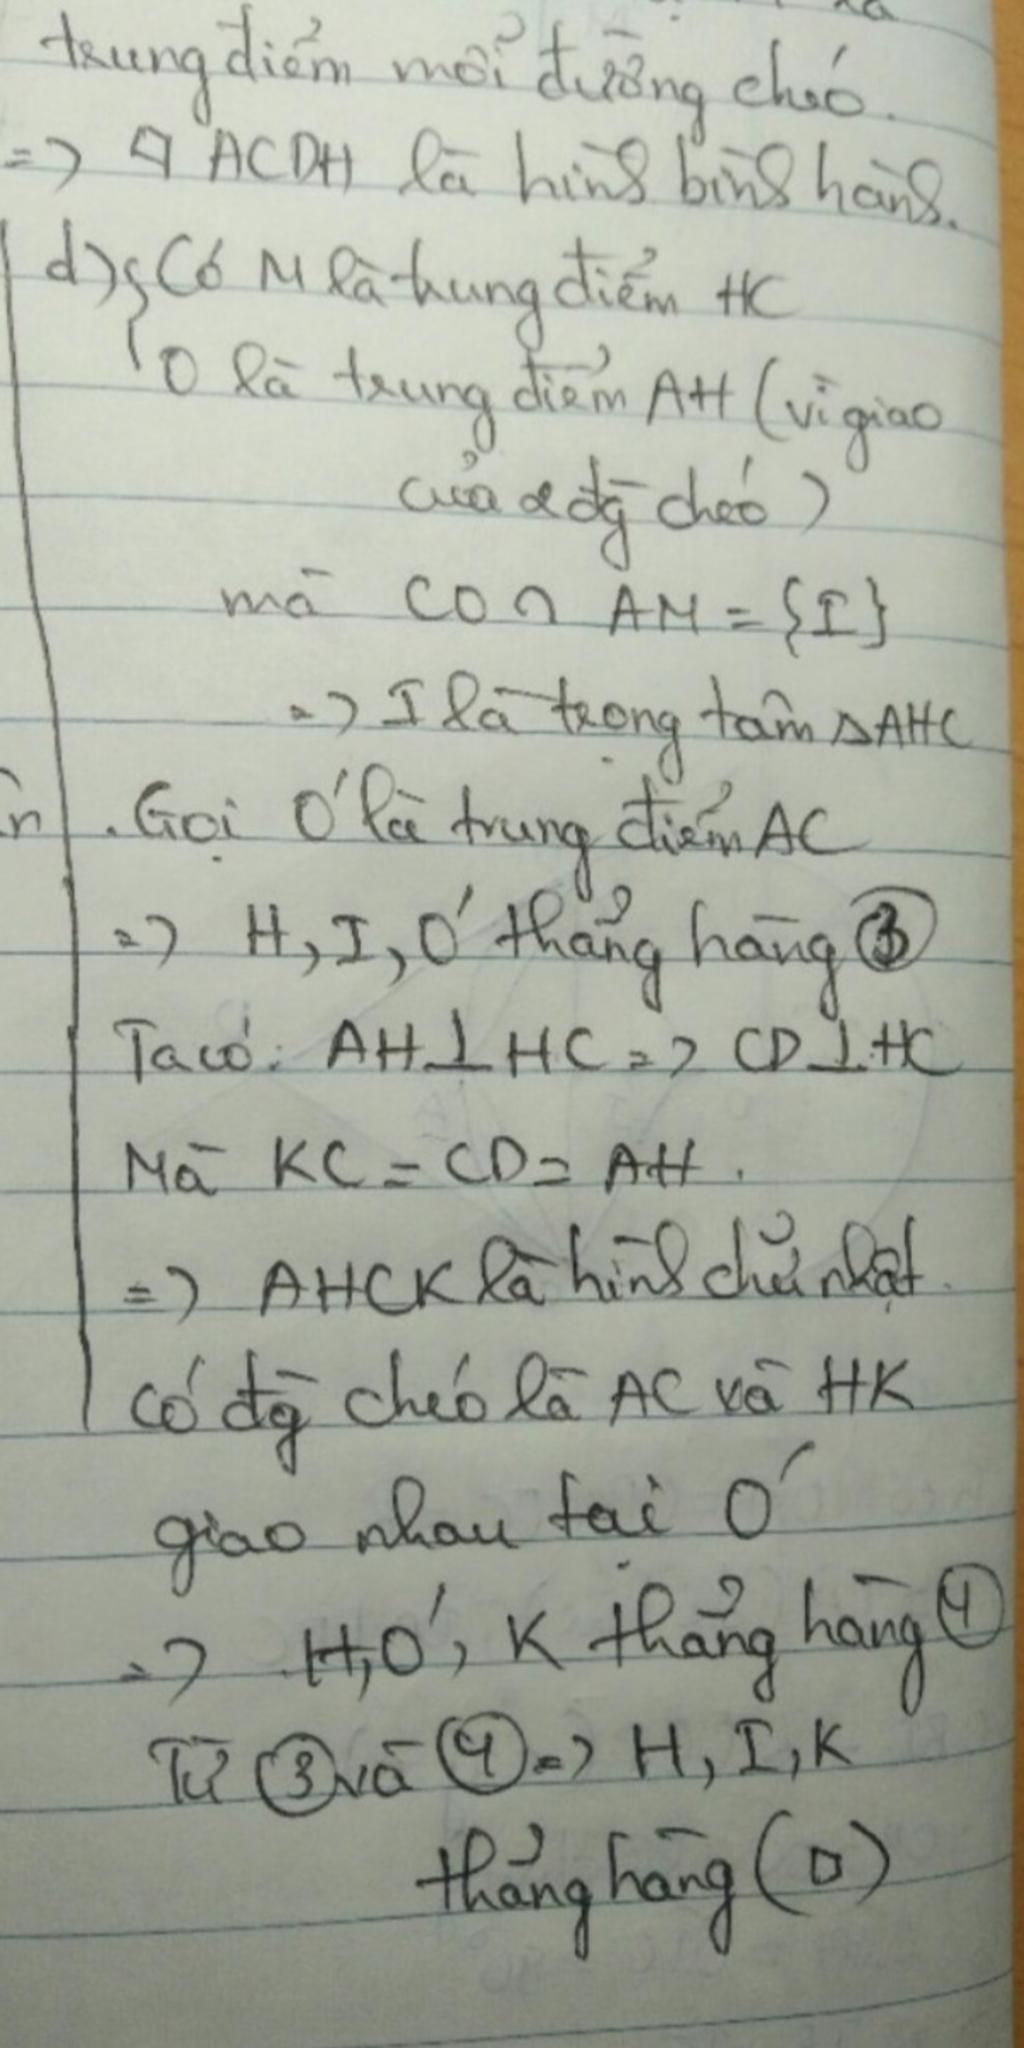 trung điểm mỗi đường chéo.
=> ▱ ACDH là hình bình hành.
d) { Có M là trung điểm HC
O là trung điểm AH (vì giao
của 2 đg chéo)
mà CO ∩ AM = {I}
=> I là trọng tâm ΔAHC
. Gọi O' là trung điểm AC
=> H, I, O' thẳng hàng ③
Ta có: AH ⊥ HC => CD ⊥ HC
Mà KC = CD = AH.
=> AHCK là hình chữ nhật.
có đg chéo là AC và HK
giao nhau tại O'
=> H, O', K thẳng hàng ④
Từ ③ và ④ => H, I, K
thẳng hàng (□)